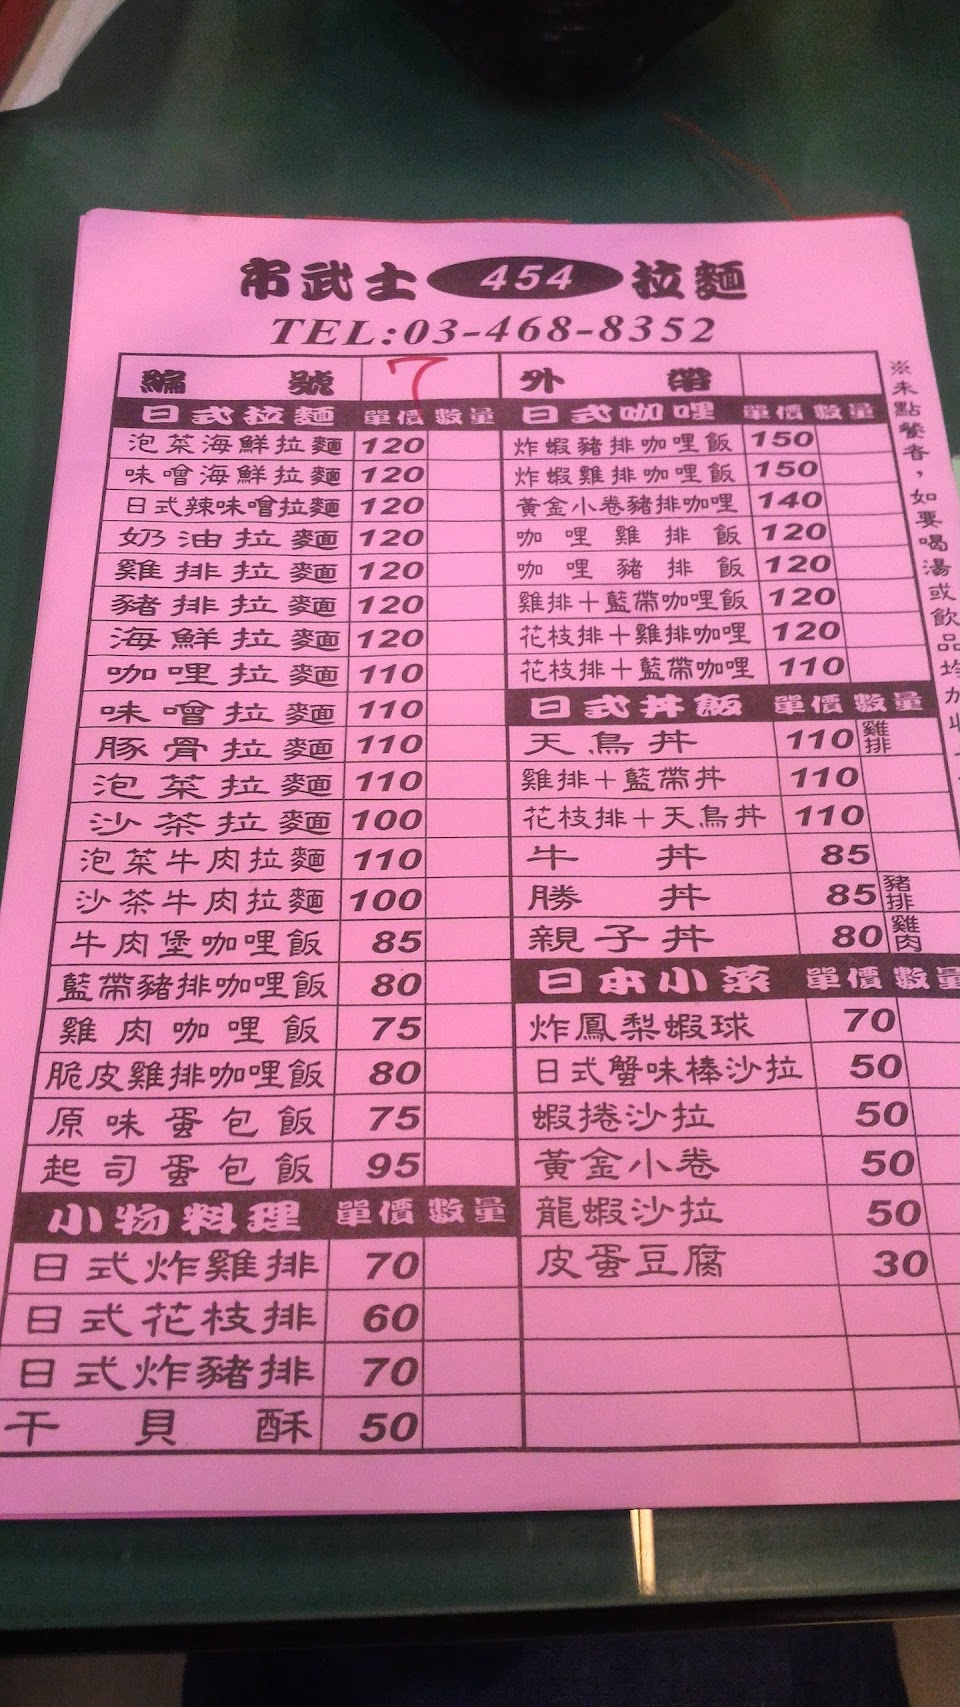 市武士 454 拉麵
TEL:03-468-8352
編號 7 外帶
日式拉麵 單價 數量
泡菜海鮮拉麵 120
味噌海鮮拉麵 120
日式辣味噌拉麵 120
奶油拉麵 120
雞排拉麵 120
豬排拉麵 120
海鮮拉麵 120
咖哩拉麵 110
味噌拉麵 110
豚骨拉麵 110
泡菜拉麵 110
沙茶拉麵 100
泡菜牛肉拉麵 110
沙茶牛肉拉麵 100
牛肉堡咖哩飯 85
藍帶豬排咖哩飯 80
雞肉咖哩飯 75
脆皮雞排咖哩飯 80
原味蛋包飯 75
起司蛋包飯 95
小物料理 單價 數量
日式炸雞排 70
日式花枝排 60
日式炸豬排 70
干貝酥 50
日式咖哩 單價 數量
炸蝦豬排咖哩飯 150
炸蝦雞排咖哩飯 150
黃金小卷豬排咖哩 140
咖哩雞排飯 120
咖哩豬排飯 120
雞排+藍帶咖哩飯 120
花枝排+雞排咖哩 120
花枝排+藍帶咖哩 110
日式丼飯 單價 數量
天鳥丼 110 雞排
雞排+藍帶丼 110
花枝排+天鳥丼 110
牛丼 85
勝丼 85 豬排
親子丼 80 雞肉
日本小菜 單價 數量
炸鳳梨蝦球 70
日式蟹味棒沙拉 50
蝦捲沙拉 50
黃金小卷 50
龍蝦沙拉 50
皮蛋豆腐 30
※未點餐者，如要喝湯或飲品均加收